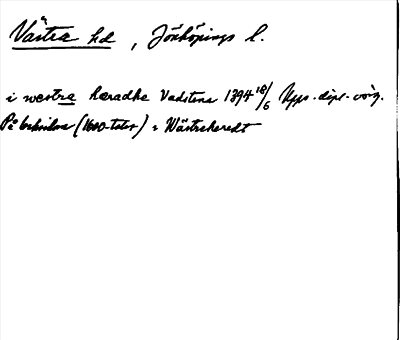 Västra hd, Jönköpings l.
i westra hæradhe Vadstena 1394 16/6 Upps. dipl. orig.
På baksidan (1600-talet): Wästraheredt